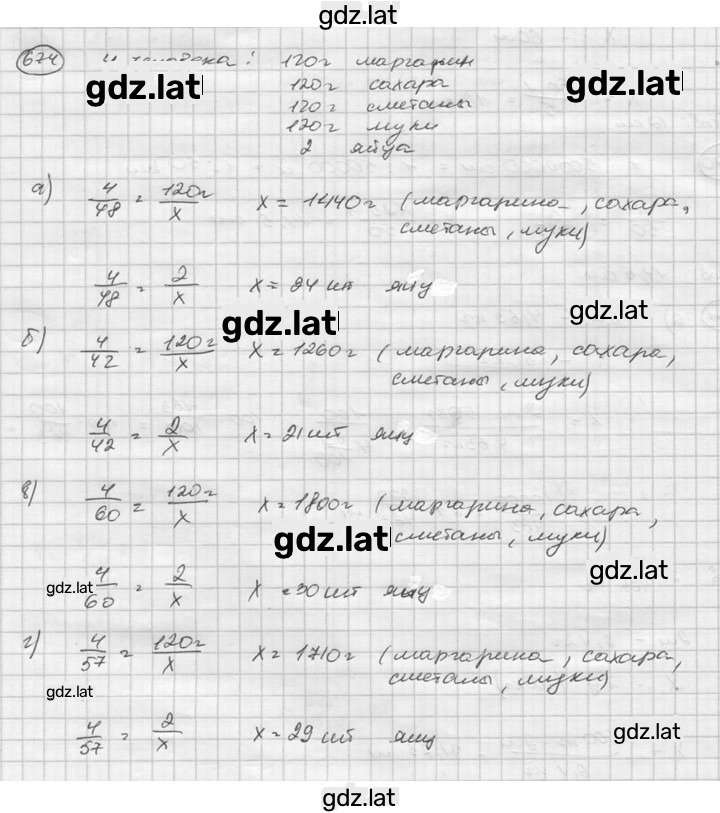 gdz.lat
674 : 120г маргарин
gdz.lat 120г сахара gdz.lat
120г сметаны
120г муки
2 яйца
а) 4/48 = 120г/x x = 1440г (маргарина, сахара,
сметаны, муки)
4/48 = 2/x x = 24 шт яиц
gdz.lat
gdz.lat
б) 4/42 = 120г/x x = 1260г (маргарина, сахара,
сметаны, муки)
4/42 = 2/x x = 21 шт яиц
в) 4/60 = 120г/x x = 1800г (маргарина, сахара,
gdz.lat сметаны, муки)
gdz.lat
gdz.lat 4/60 = 2/x x = 30 шт яиц
г) 4/57 = 120г/x x = 1710г (маргарина, сахара,
сметаны, муки)
gdz.lat
4/57 = 2/x x = 29 шт яиц
gdz.lat
gdz.lat